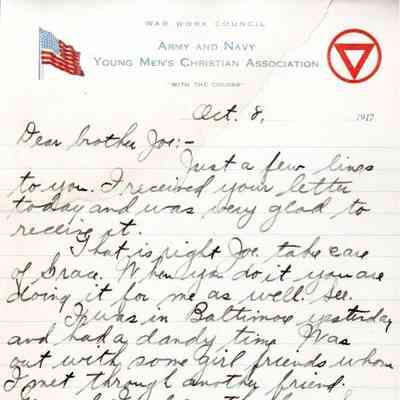 WAR WORK COUNCIL
ARMY AND NAVY
YOUNG MEN'S CHRISTIAN ASSOCIATION
"WITH THE COLORS"
Oct. 8, 1917
Dear brother Joe:-
Just a few lines
to you. I received your letter
today and was very glad to
receive it.
That is right Joe take care
of Grace. When you do it you are
doing it for me as well. See.
I was in Baltimore yesterday
and had a dandy time. Was
out with some girl friends whom
I met through another friend.